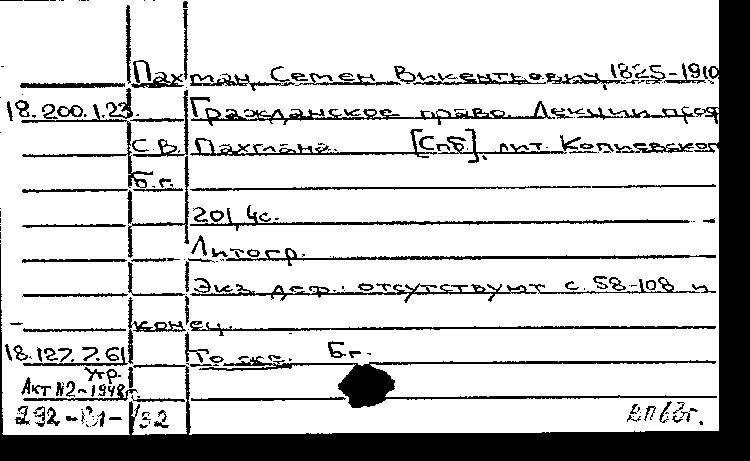 Пахман, Семен Викентьевич, 1825-1910
18.200.1.23. Гражданское право. Лекции проф
С.В. Пахмана. [Спб], лит. Копиевског
Б.г.
201, 4с.
Литогр.
Экз. деф.: отсутствуют с. 58-108 и
конец.
18.127.7.61 То же. Б.г.
Утр.
Акт N2-1948г.
292- /32 ВП63г.